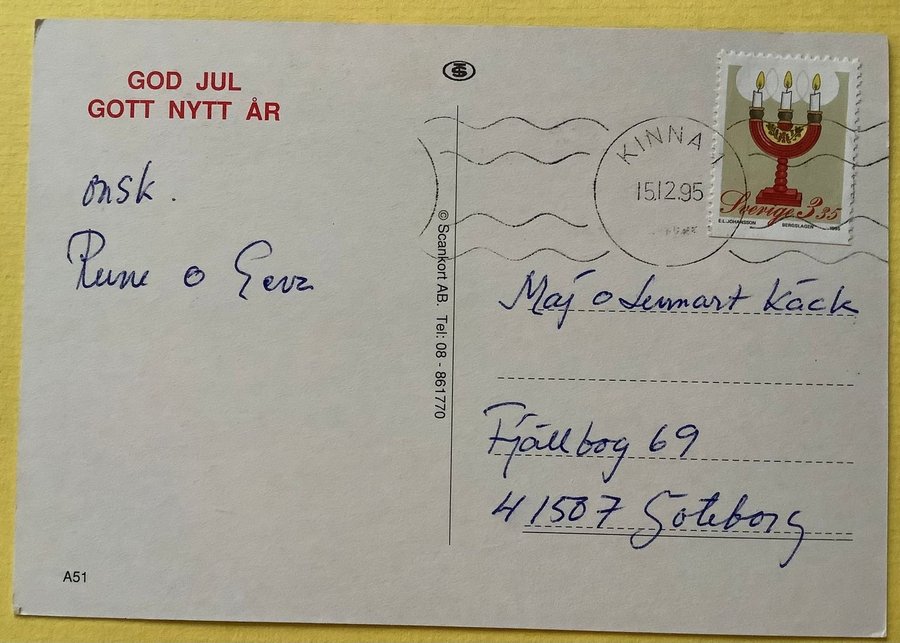 GOD JUL
GOTT NYTT ÅR
önsk.
Rune o Gerz
© Scankort AB. Tel: 08 - 861770
A51
KINNA
15.12.95
Sverige 3 35
E.L. JOHANSSON BERGSLAGEN 1995
Maj o Lennart Käck
Fjällbog 69
41507 Göteborg